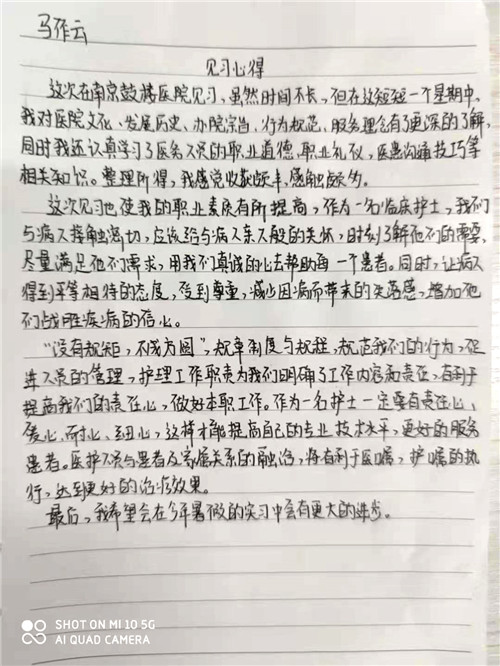 马作云
见习心得
这次在南京鼓楼医院见习,虽然时间不长,但在这短短一个星期中,
我对医院文化、发展历史、办院宗旨、行为规范、服务理念有了更深的了解,
同时我还认真学习了医务人员的职业道德、职业礼仪,医患沟通技巧等
相关知识。整理所得,我感觉收获颇丰,感触颇多。
这次见习也使我的职业素质有所提高,作为一名临床护士,我们
与病人接触密切,应该给与病人亲人般的关怀,时刻了解他们的需要,
尽量满足他们需求,用我们真诚的心去帮助每一个患者。同时,让病人
得到平等相待的态度,受到尊重,减少因病而带来的失落感,增加他
们战胜疾病的信心。
“没有规矩,不成方圆”,规章制度与规程,规范我们的行为,促
进人员的管理,护理工作职责为我们明确了工作内容和责任,有利于
提高我们的责任心,做好本职工作。作为一名护士一定要有责任心、
爱心、耐心、细心,这样才能提高自己的专业技术水平,更好的服务
患者。医护人员与患者及家属关系的融洽,将有利于医嘱,护嘱的执
行,达到更好的治疗效果。
最后,我希望会在今年暑假的实习中会有更大的进步。
SHOT ON MI 10 5G
AI QUAD CAMERA